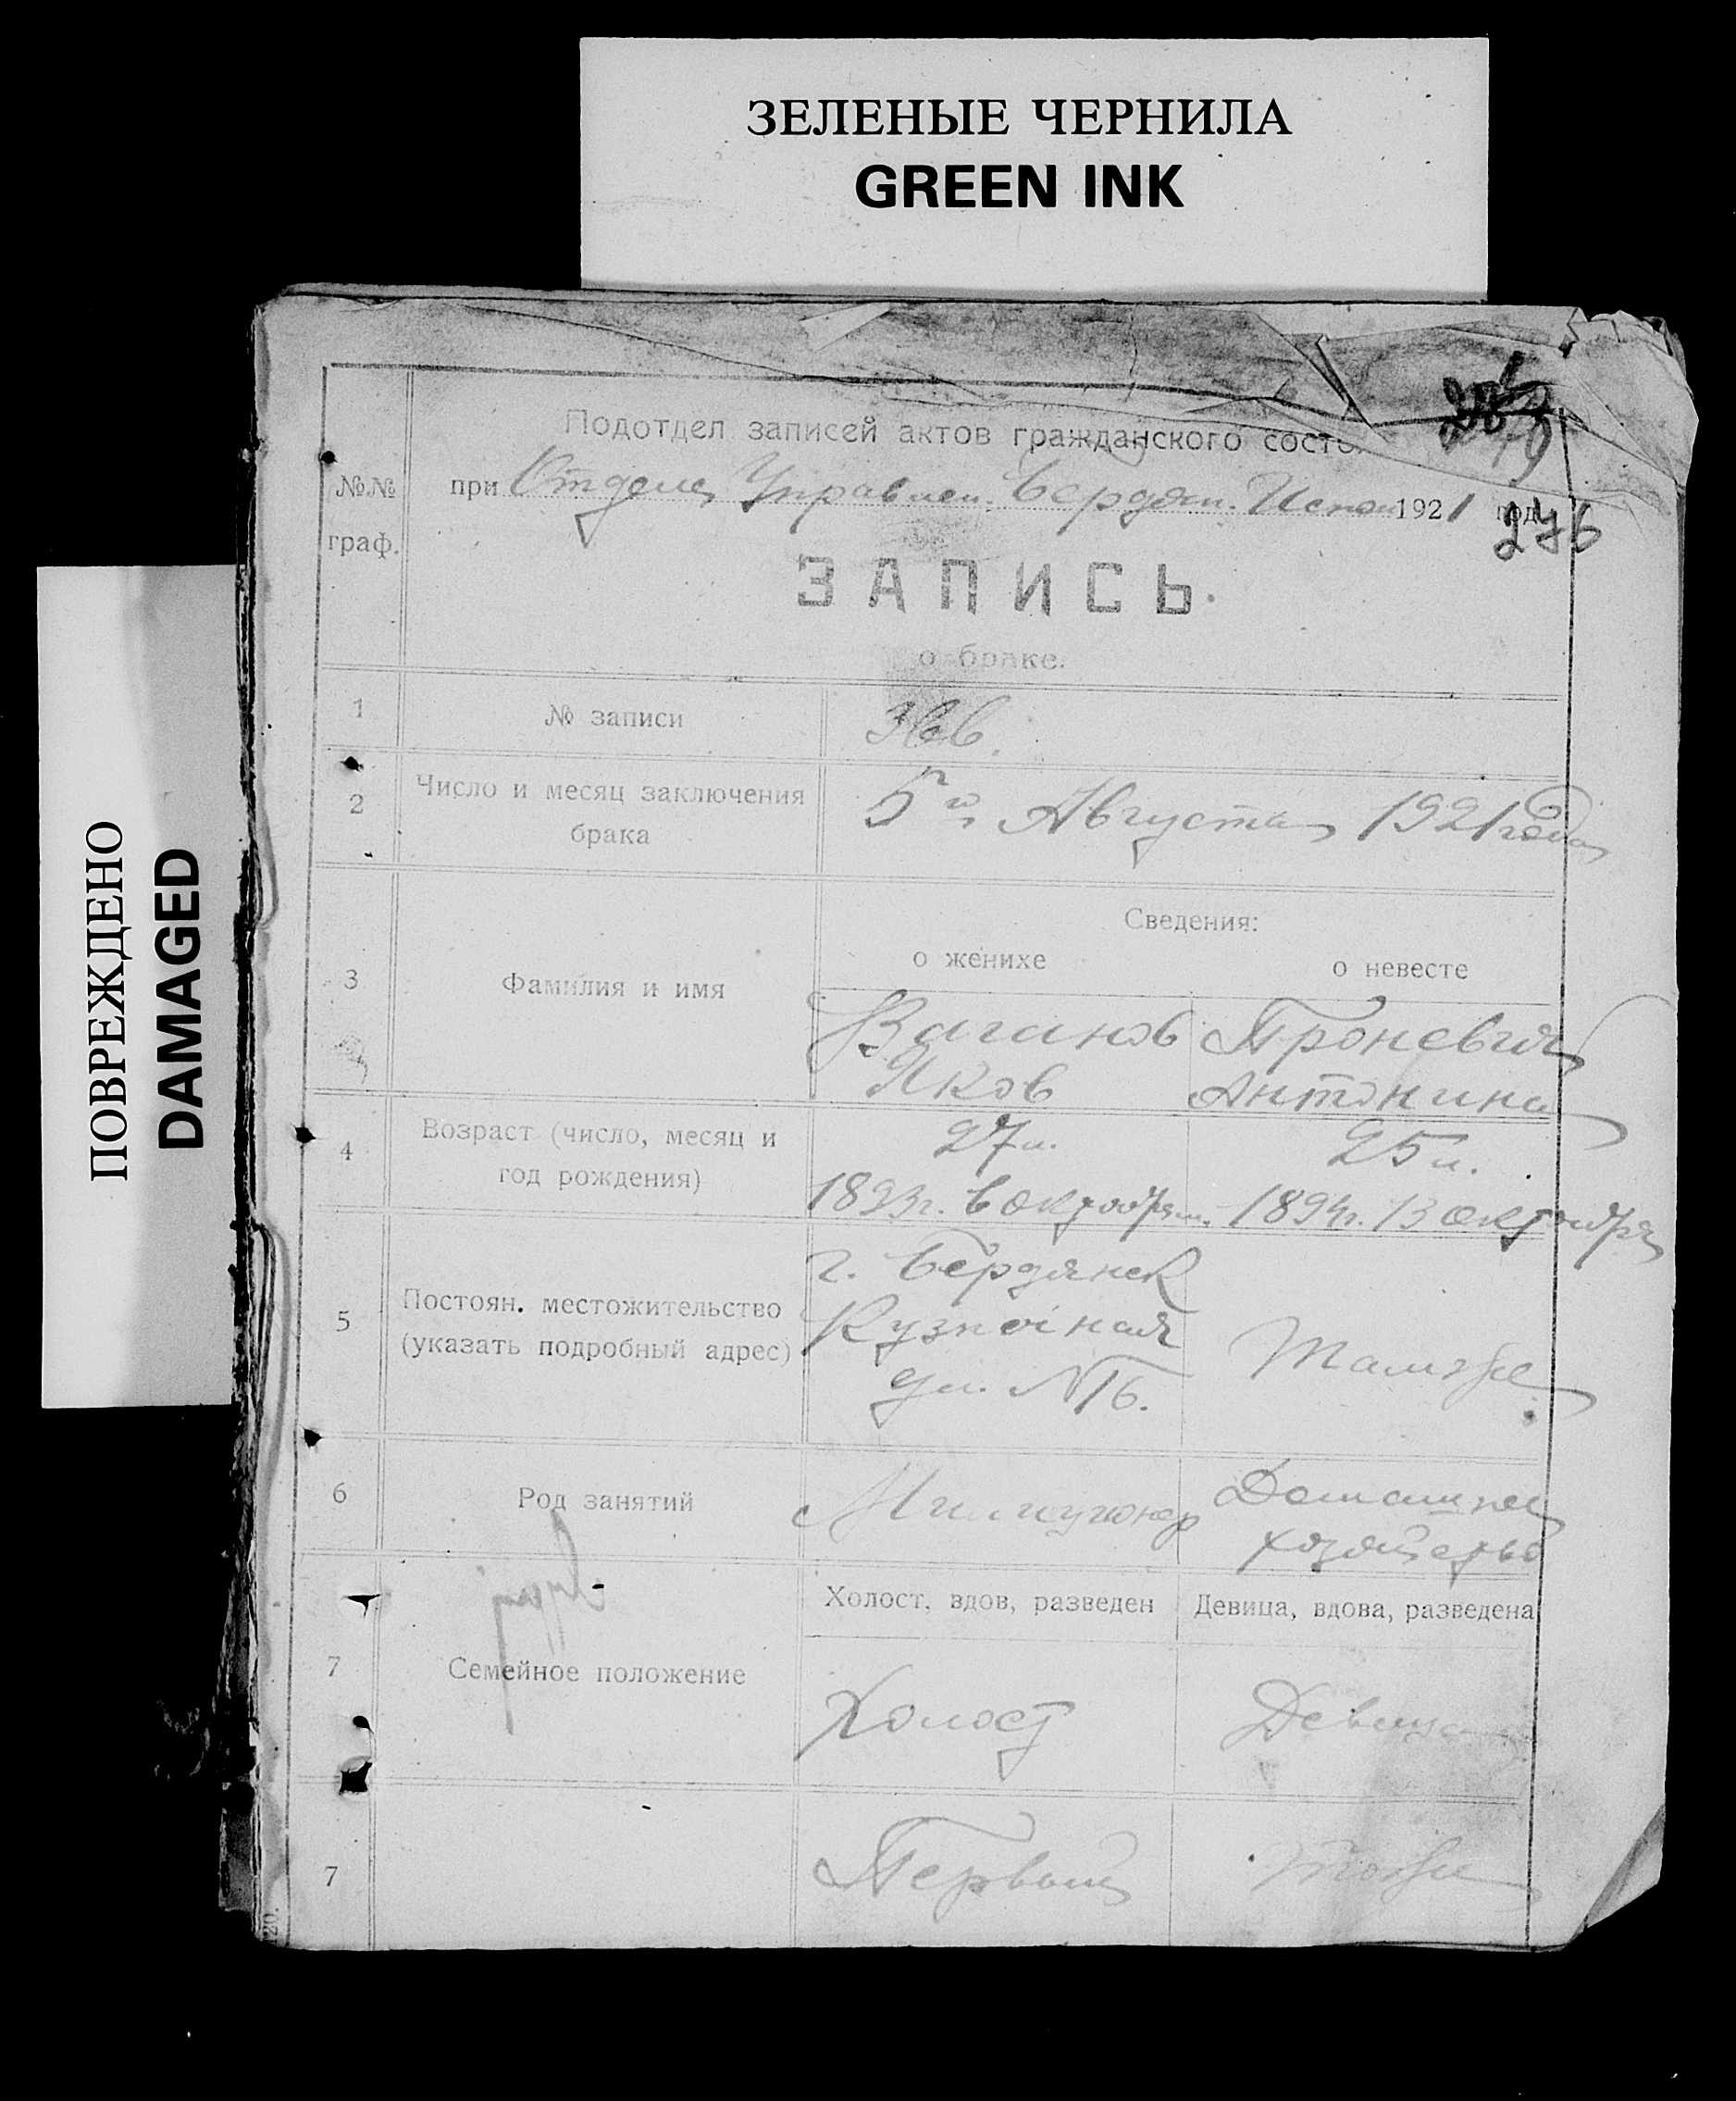 ЗЕЛЕНЫЕ ЧЕРНИЛА
GREEN INK
ПОВРЕЖДЕНО
DAMAGED
Подотдел записей актов гражданского состо
№№ граф.
при Отделе Управлен. Бердян. Испол 1921 год
276
ЗАПИСЬ.
о браке.
1 № записи
2 Число и месяц заключения брака
5го Августа 1921 года
Сведения:
о женихе о невесте
3 Фамилия и имя
Ваганов
Яков
Антонина
4 Возраст (число, месяц и год рождения)
27 л. 25 л.
1893г. октября 1894г. 13 октября
5 Постоян. местожительство (указать подробный адрес)
г. Бердянск
ул. №
Там же
6 Род занятий
Милиционер
Домашнее
хозяйство
Холост, вдов, разведен Девица, вдова, разведена
7 Семейное положение
Холост Девица
7
Первый тоже
20.